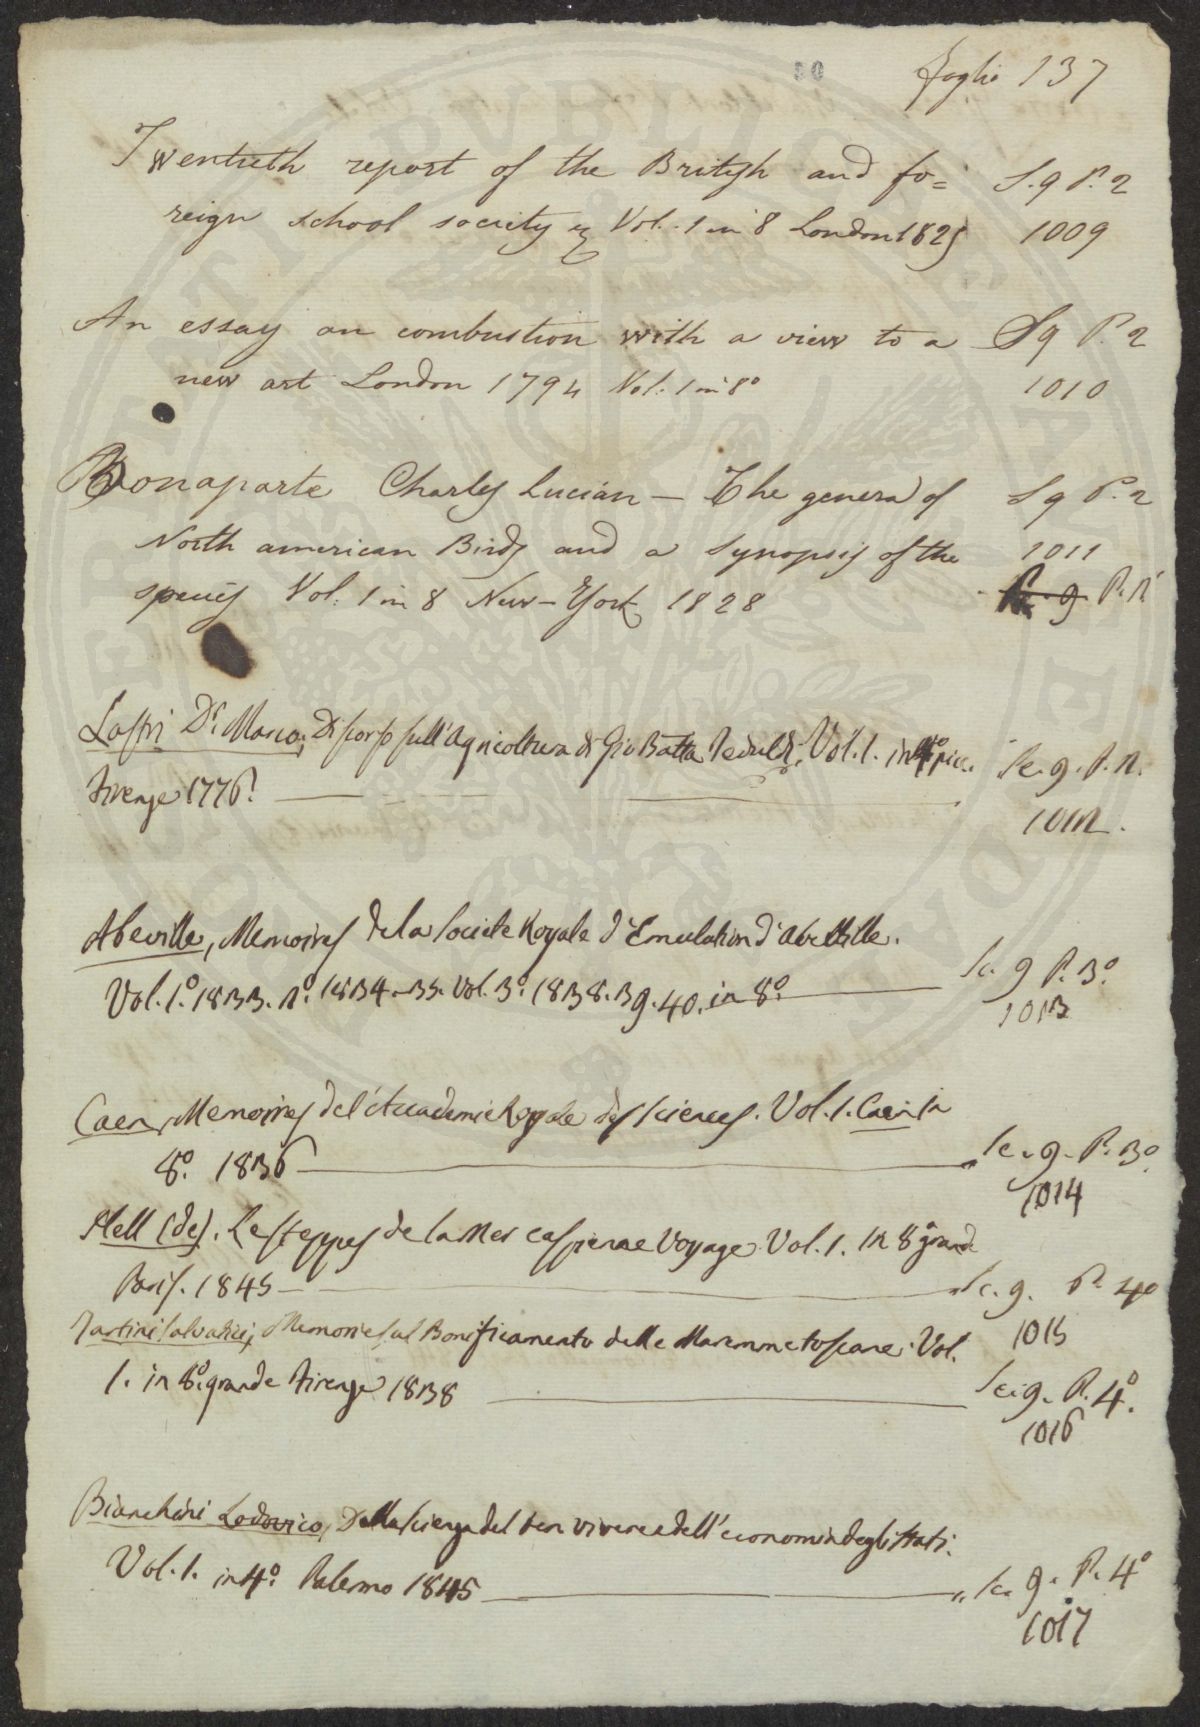 50
foglio 137
Twentieth report of the British and fo= S. 9 P. 2
reign school society & Vol. 1 in 8 London 1825 1009
An essay on combustion with a view to a S 9 P. 2
new art London 1794 Vol. 1 in 8º 1010
Bonaparte Charles Lucian — The genera of S 9 P. 2
North american Birds and a Synopsis of the 1011
species Vol. 1 in 8 New-York 1828 9 P. 2
Lastri Dr. Marco, Discorso sull'Agricoltura di Gio Batta Vol. 1. in 4º picc. Sc. 9. P. 2.
Firenze 1776. 1012.
Abeville, Memoires de la Societe Royale d'Emulation d'Abeville.
Vol. 1.º 1833. 2.º 1834.-35. Vol. 3.º 1838. 39. 40. in 8.º Sc. 9 P. 3.º
1013
Caen, Memoires de l'Accademie Royale des Sciences. Vol. 1. Caen in
8.º 1836 Sc. 9. P. 3.º
1014
Hell (de). Les steppes de la Mer caspienne Voyage. Vol. 1. in 8º grande
Paris. 1845 Sc. 9. P. 4º
1015
Tartini Salvatici, Memorie sul Bonificamento delle Maremme toscane. Vol.
1. in 8.º grande Firenze 1838 Sc. 9. P. 4.º
1016
Bianchini Lodovico, Della Scienza del ben vivere e dell'economia degli Stati.
Vol. 1. in 4.º Palermo 1845 Sc. 9. P. 4º
1017